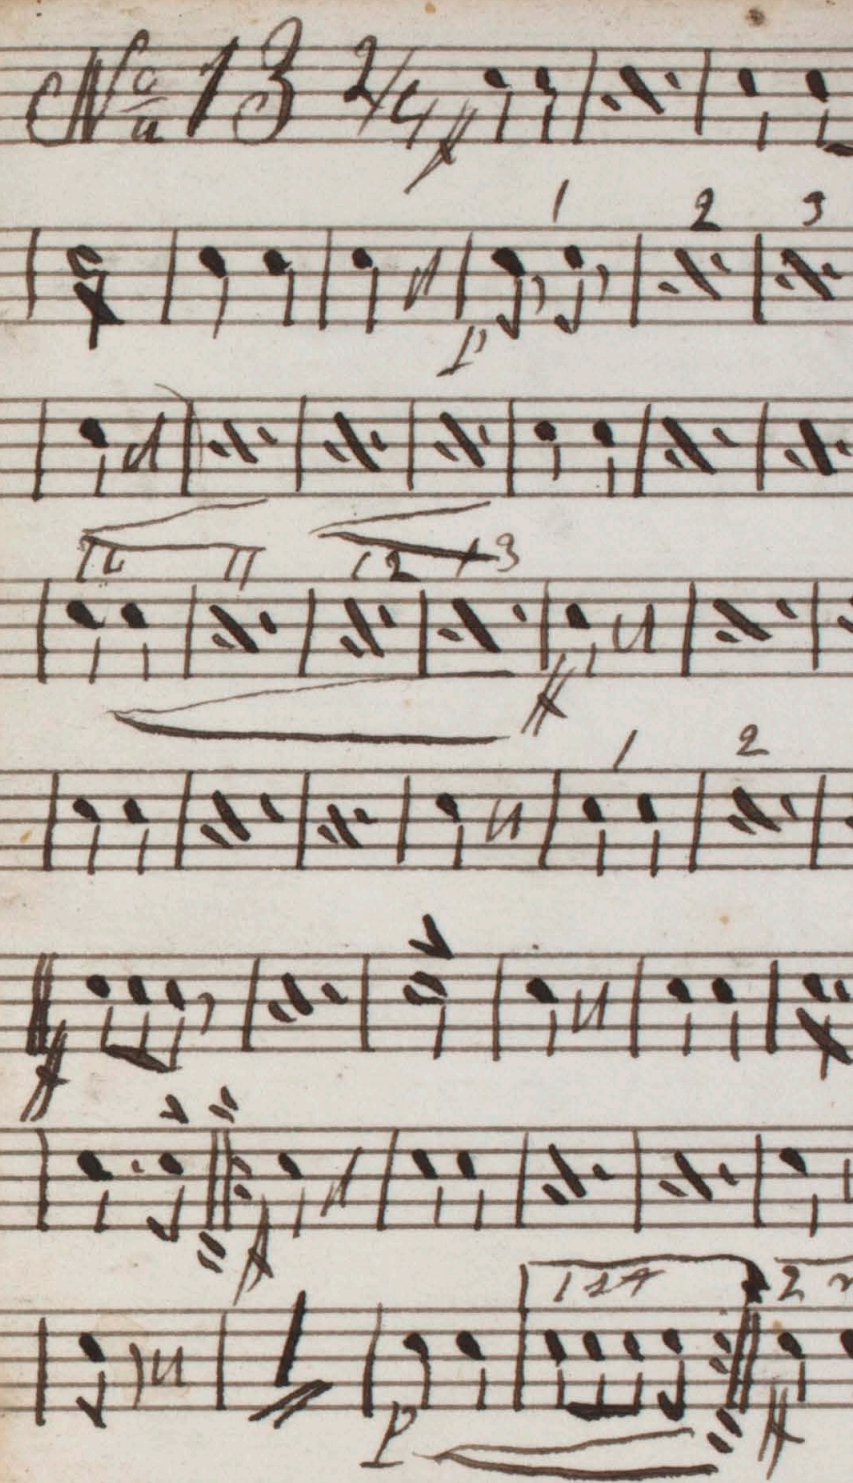 No 13 2/4 ff
1 2 3
P
12 11 12 13
ff
1 2
ff
ff
1st 2
P ff